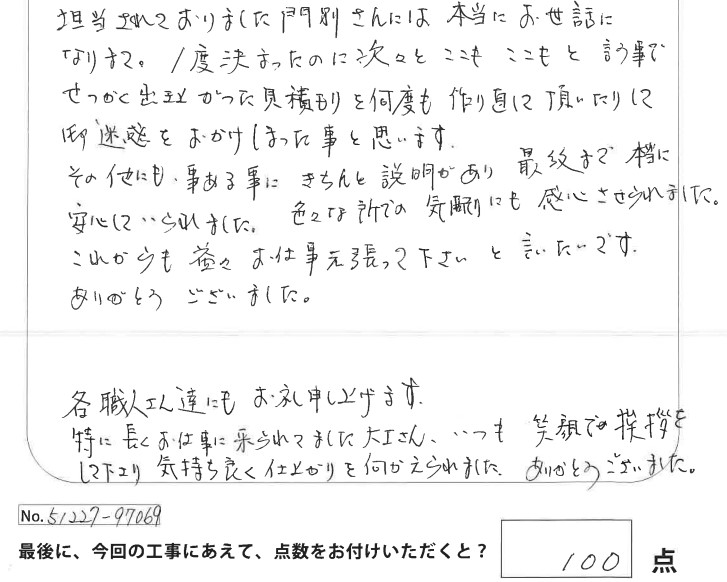 担当されておりました門別さんには 本当に お世話に
なります。 1度決まったのに次々と ここも ここもと 言う事で
せっかく出来上がった見積もりを何度も 作り直して 頂いたりして
御迷惑を おかけしまった事と思います。
その他にも、事ある事に きちんと説明があり 最終まで 本当に
安心していられました。 色々な所での 気配りにも 感心させられました。
これからも 益々 お仕事头張って下さい と 言いたいです。
ありがとう ございました。
各職人さん達にも お礼申し上げます。
特に長くお仕事に来られてました大工さん、いつも 笑顔での挨拶を
して下さり 気持ち良く仕上がりを何かえられました。 ありがとうございました。
No. 51227-97069
最後に、今回の工事にあえて、点数をお付けいただくと？ 100 点